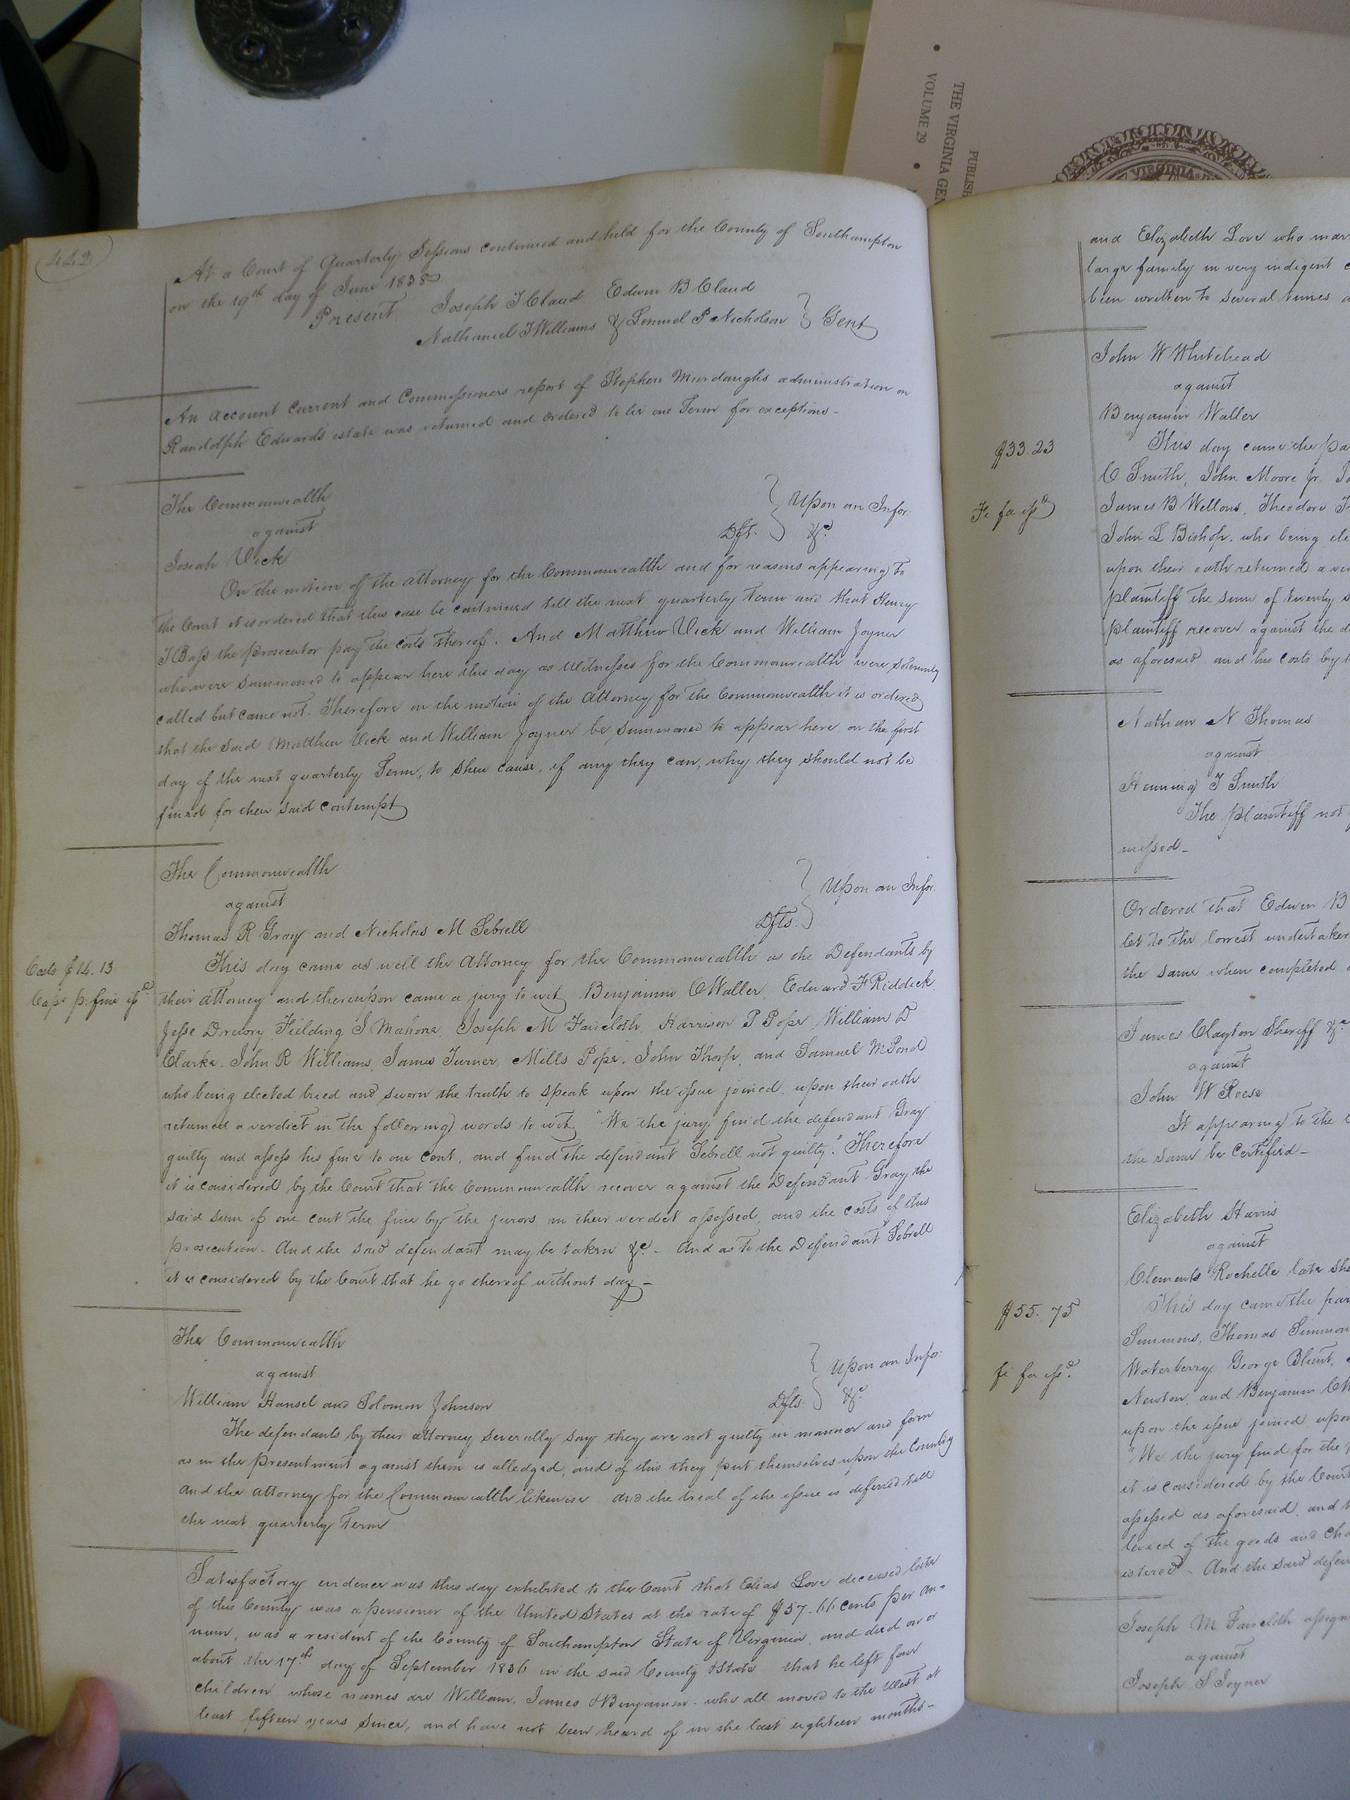 442
At a Court of Quarterly Sessions continued and held for the County of Southampton
on the 19th day of June 1838
Present Joseph T Claud Edwin B Claud
Nathaniel T Williams & Lemuel P Nicholson } Gent
An account current and Commissioners report of Stephen Murdaughs administration on
Randolph Edwards estate was returned and ordered to lie one Term for exceptions-
The Commonwealth
against
Josiah Vick Dft. } Upon an Infor. &c
On the motion of the attorney for the Commonwealth and for reasons appearing to
the Court it is ordered that this case be continued till the next quarterly Term and that Henry
J Bass the prosecutor pay the costs thereof. And Matthew Vick and William Joyner
who were summoned to appear here this day as witnesses for the Commonwealth were solemnly
called but came not. Therefore on the motion of the Attorney for the Commonwealth it is ordered
that the said Matthew Vick and William Joyner be summoned to appear here on the first
day of the next quarterly Term, to shew cause, if any they can, why they should not be
fined for their said contempt
The Commonwealth
against
Thomas R Gray and Nicholas M Sebrell Dfts. } Upon an Infor.
Costs $14.13
Caps p. fine issd
This day came as well the Attorney for the Commonwealth as the Defendants by
their attorney and thereupon came a jury to wit, Benjamin C Waller, Edward F Riddick
Jesse Drewry, Fielding J Mahone, Joseph M Faircloth, Harrison P Pope, William D
Clarke, John R Williams, James Turner, Mills Pope, John Thorp, and Samuel M Pond
who being elected tried and sworn the truth to speak upon the issue joined, upon their oath
returned a verdict in the following words to wit, "We the jury find the defendant Gray
guilty and assess his fine to one cent, and find the defendant Sebrell not guilty." Therefore
it is considered by the Court that the Commonwealth recover against the Defendant Gray the
said sum of one cent the fine by the jurors in their verdict assessed, and the costs of this
prosecution- And the said defendant may be taken &c- And as to the Defendant Sebrell
it is considered by the Court that he go thereof without day-
The Commonwealth
against
William Hansel and Solomon Johnson Dfts. } Upon an Infor. &c
The defendants by their attorney severally say they are not guilty in manner and form
as in the presentment against them is alledged, and of this they put themselves upon the Country
and the attorney for the Commonwealth likewise and the trial of the issue is deferred till
the next quarterly Term
Satisfactory evidence was this day exhibited to the Court that Elias Love deceased late
of this County was a pensioner of the United States at the rate of $57.66 cents per an-
num, was a resident of the County of Southampton State of Virginia, and died on or
about the 17th day of September 1836 in the said County & State that he left four
children whose names are William, James & Benjamin- who all moved to the West at
least fifteen years since, and have not been heard of in the last eighteen months-
and Elizabeth Love who marr
large family in very indigent c
been written to several times a
John W Whitehead
against
Benjamin Waller
$33.23
Fi fa issd
This day came the pa
C Smith, John Moore jr. Ja
James B Wellons, Theodore T
John L Bishop, who being ele
upon their oath returned a ver
plaintiff the sum of twenty s
plaintiff recover against the d
as aforesaid and his costs by h
Nathan N Thomas
against
Henning T Smith
The plaintiff not
missed-
Ordered that Edwin B
let to the lowest undertaker
the same when completed a
James Clayton Sheriff &c
against
John W Reese
It appearing to the C
the same be certified-
Elizabeth Harris
against
Clements Rochelle late She
$55.75
fi fa issd.
This day came the par
Simmons, Thomas Simmon
Waterberry, George Blunt,
Newton, and Benjamin C W
upon the issue joined upon
"We the jury find for the p
it is considered by the Court
assessed as aforesaid, and h
levied of the goods and cha
istered- And the said defen
Joseph M Faircloth assign
against
Joseph S Joyner
THE VIRGINIA GEN
VOLUME 29
PUBLISH
VIRGINIA